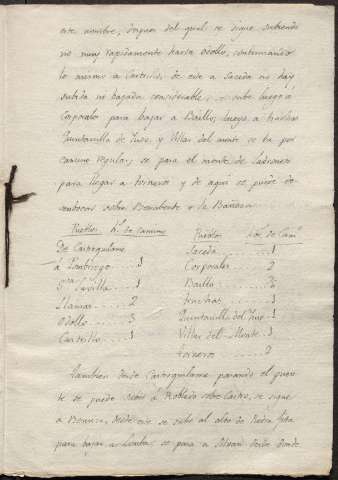 este nombre, despues del qual se sigue subiendo
no muy rapidamente hasta Odollo, continuando
lo mismo a Castrillo; de este a Saceda no hay
subida ni bajada considerable, se sube luego a
Corporales para bajar a Baillo; luego a truchas
Quintanilla de Yuso, y Villar del monte se va por
camino regular, se pasa el monte de ladrones
para llegar a torneros y de aqui se puede de-
sembocar sobre Benabente o la Bañeza.
Pueblos H.s de camino Pueblos H.s de Cam.o
De Castroquilame Saceda 1
á Pombriego 1 Corporales 2
S.ta Eulalia 1 Baillo
Llamas 2 truchas 1
Odollo 3 Quintanilla del Yuso 1
Castrillo 1 Villar del Monte 1
torneros 2
tambien desde Castroquilame pasando el puen-
te se puede desde á Robledo sobre Castro, se sigue
a Benuza, desde este se sube al alto de Piedra fita
para bajar a Lomba; se pasa a Silvan desde donde